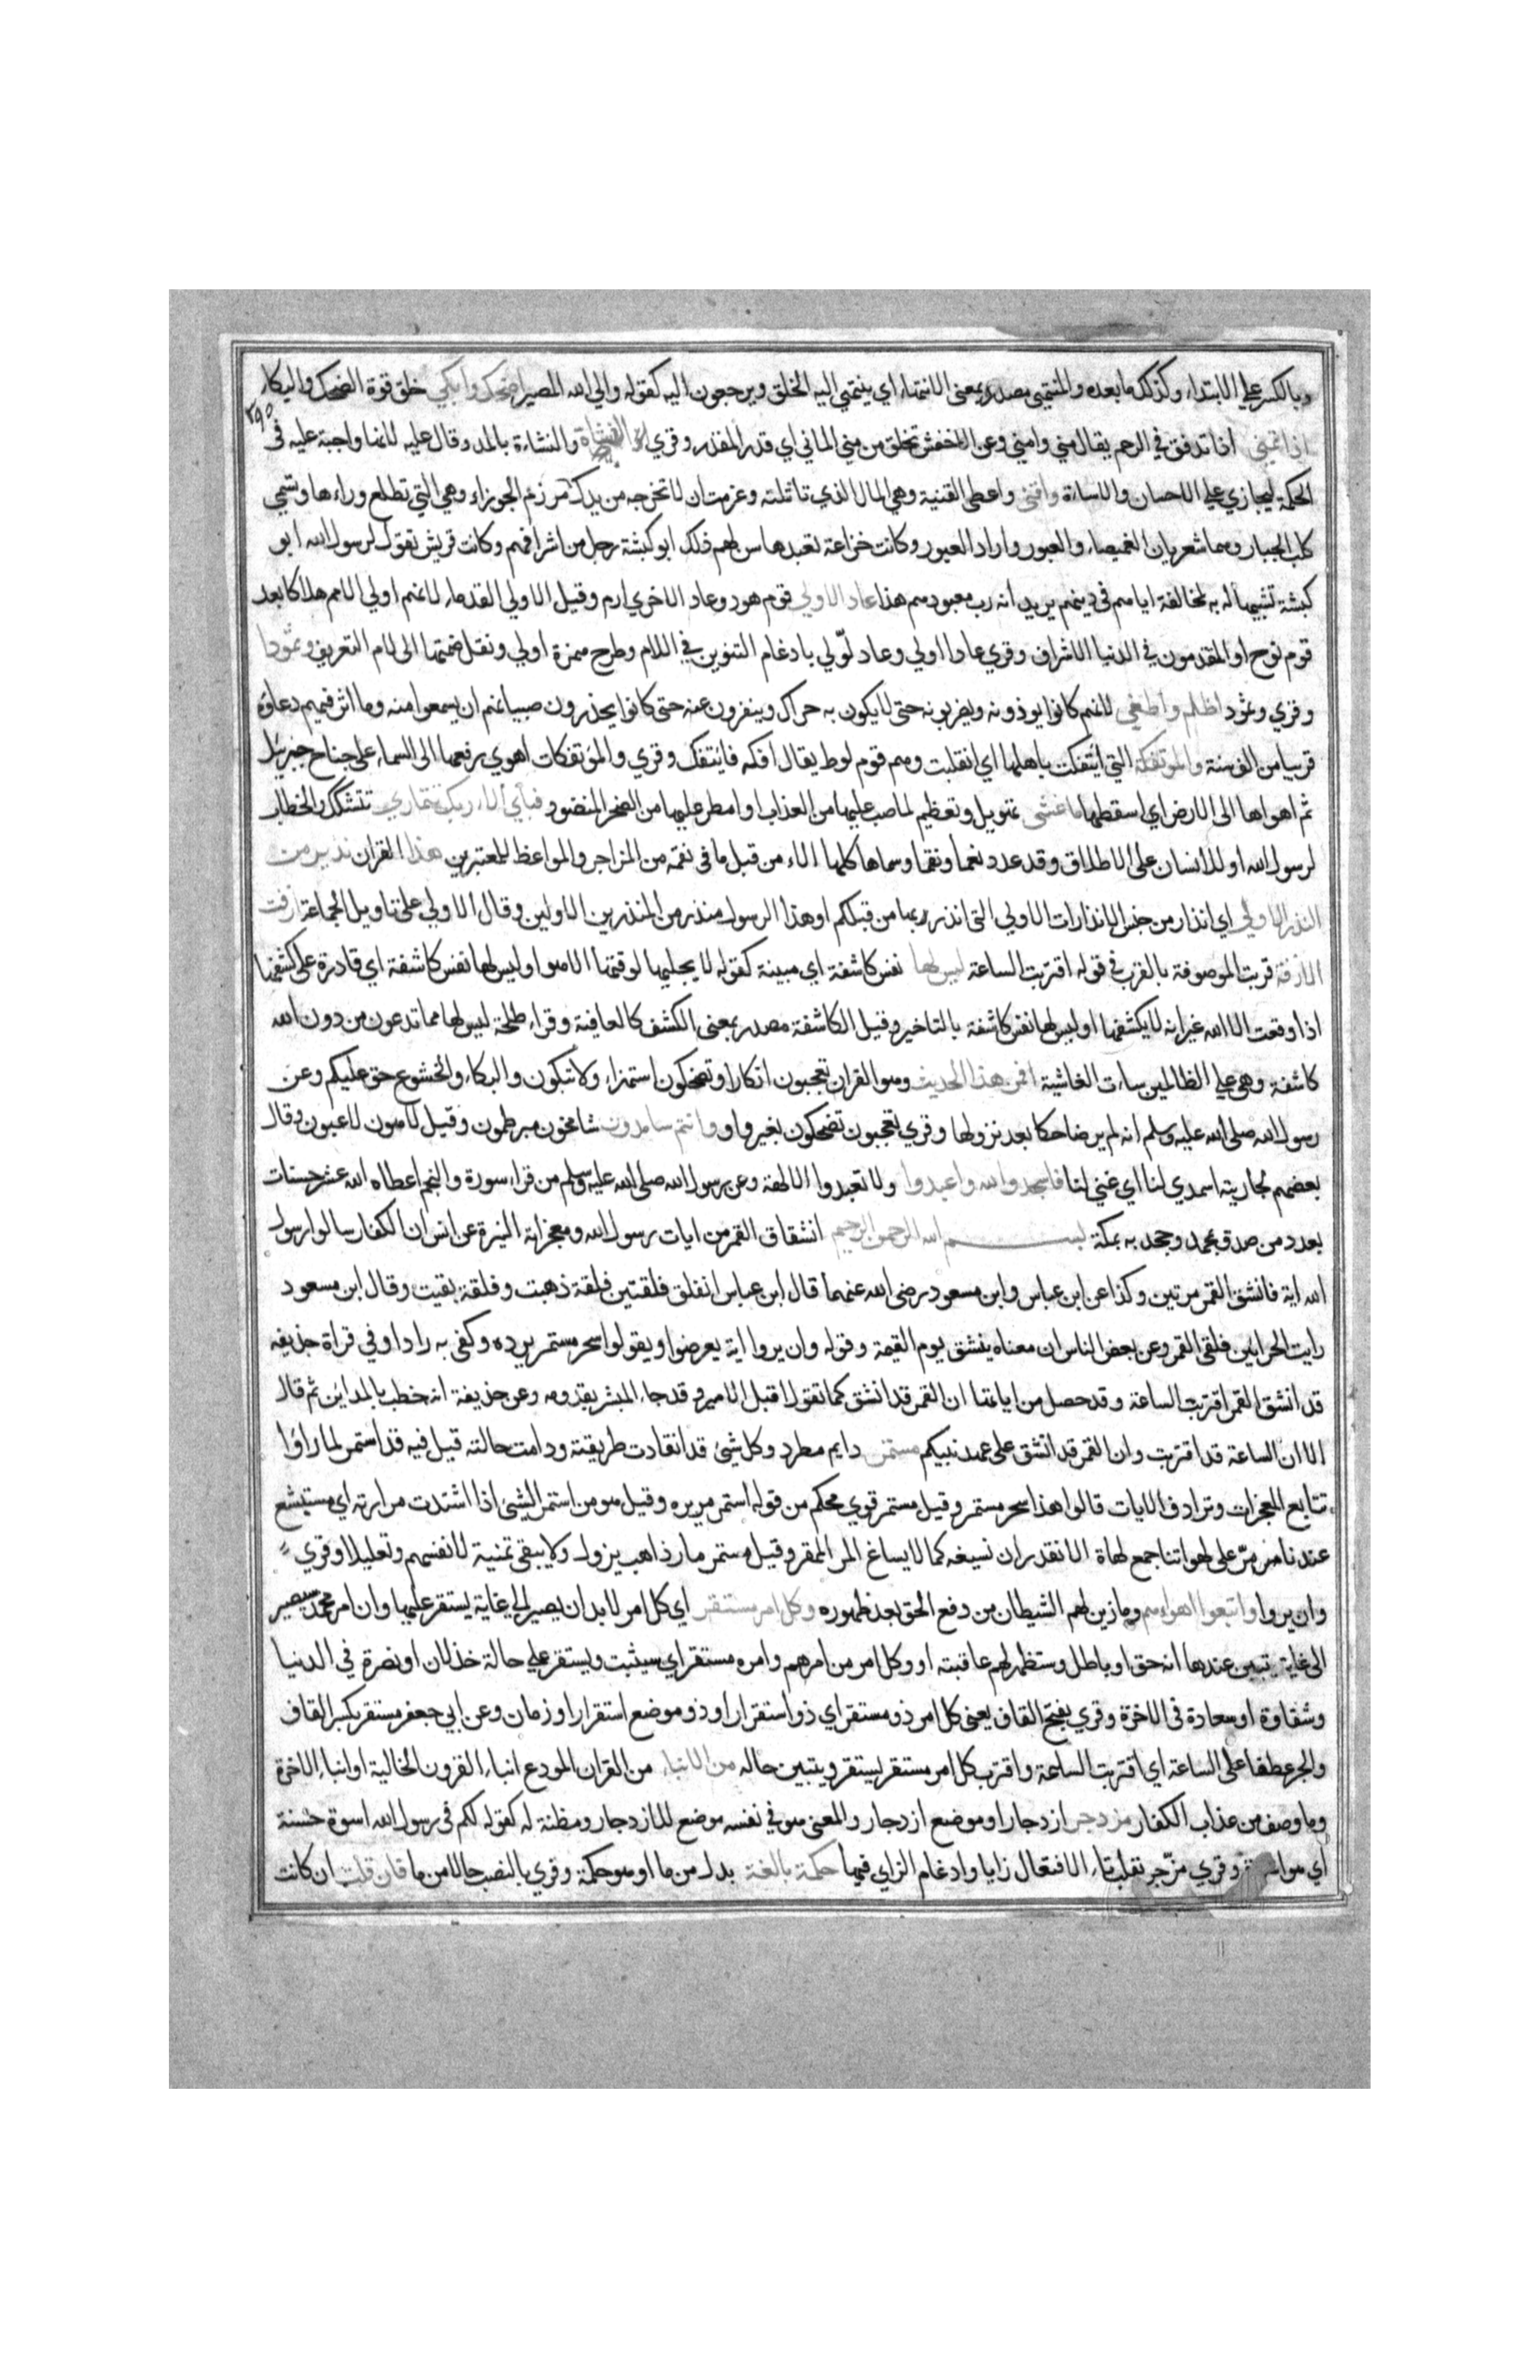 وبالكسر علي الابتداء وكذلك ما بعده والمنتهي مصدر بمعنى الانتهاء اي ينتهي اليه الخلق ويرجعون اليه كقوله والي الله المصير اضحك وابكي خلق قوة الضحك والبكاء
٣٩٥
اذا تمني اذا تدفق في الرحم يقال مني وامني وعن الاخفش تخلق من مني الماني اي قدر المقدر وقري النشاة والنشاءة بالمد وقال عليه لانها واجبة عليه في
الحكمة ليجازي علي الاحسان والاساءة واقني واعطي القنية وهي المال الذي تاثلته وعزمت ان لا تخرجه من يدك مرزم الجوزاء وهي التي تطلع وراءها وتسمي
كلب الجبار وهما شعريان الغميصاء والعبور واراد العبور وكانت خزاعة تعبدها سن لهم ذلك ابو كبشة رجل من اشرافهم وكانت قريش تقول لرسول الله ابو
كبشة تشبيها له به لمخالفة اياهم في دينهم يريد انه رب معبودهم هذا عاد الاولي قوم هود وعاد الاخري ارم وقيل الاولي القدماء لانهم اولي الامم هلاكا بعد
قوم نوح او المقدمون في الدنيا الاشراف وقري عادا اولي وعاد لّولي بادغام التنوين في اللام وطرح همزة اولي ونقل ضمتها الى لام التعريف وثمودا
وقري وثمود اظلم واطغي لانهم كانوا يوذونه ويضربونه حتى لا يكون به حراك وينفرون عنه حتى كانوا يحذرون صبيانهم ان يسمعوا منه وما اثر فيهم دعاؤه
قريبا من الف سنة والموتفكة التي ائتفكت باهلها اي انقلبت وهم قوم لوط يقال افكه فائتفك وقري والمؤتفكات اهوي رفعها الى السماء على جناح جبرئيل
ثم اهواها الى الارض اي اسقطها ما غشى تهويل وتعظيم لما صب عليها من العذاب وامطر عليها من الصخر المنضود فباي الاء ربك تتماري تتشكك والخطاب
لرسول الله او للانسان على الاطلاق وقد عدد نعما ونقما وسماها كلها الاء من قبل ما في نقمه من المزاجر والمواعظ للمعتبرين هذا القران نذير من
النذر الاولي اي انذار من جنس الانذارات الاولي التي انذر بها من قبلكم او هذا الرسول منذر من المنذرين الاولين وقال الاولي على تاويل الجماعة ازفت
الازفة قربت الموصوفة بالقرب في قوله اقتربت الساعة ليس لها نفس كاشفة اي مبينة كقوله لا يجليها لوقتها الا هو او ليس لها نفس كاشفة اي قادرة على كشفها
اذا وقعت الا الله غير انه لا يكشفها او ليس لها نفس كاشفة بالتاخير وقيل الكاشفة مصدر بمعنى الكشف كالعافية وقراء طلحة ليس لها مما تدعون من دون الله
كاشفة وهي علي الظالمين ساءت الغاشية افمن هذا الحديث وهو القران تعجبون انكارا وتضحكون استهزاء ولا تبكون والبكاء والخشوع حق عليكم وعن
رسول الله صلى الله عليه وسلم انه لم ير ضاحكا بعد نزولها وقري تعجبون تضحكون بغير واو وانتم سامدون شامخون مبرطمون وقيل لاهون لاعبون وقال
بعضهم لجاريته اسمدي لنا اي غني لنا فاسجدوا لله واعبدوا ولا تعبدوا الالهة وعن رسول الله صلى الله عليه وسلم من قراء سورة والنجم اعطاه الله عشر حسنات
بعدد من صدق بمحمد وجحد به بمكة بسم الله الرحمن الرحيم انشقاق القمر من ايات رسول الله ومعجزاته النيرة عن انس ان الكفار سالوا رسول
الله اية فانشق القمر مرتين وكذا عن ابن عباس وابن مسعود رضى الله عنهما قال ابن عباس انفلق فلقتين فلقة ذهبت وفلقة بقيت وقال ابن مسعود
رايت الحرا بين فلقي القمر وعن بعض الناس ان معناه ينشق يوم القيمة وقوله وان يروا اية يعرضوا ويقولوا سحر مستمر يرده وكفى به رادا وفي قراة حذيفه
قد انشق القمر اقتربت الساعة وقد حصل من اياتها ان القمر قد انشق كما تقول اقبل الامير وقد جاء المبشر بقدومه وعن حذيفة انه خطب بالمداين ثم قال
الا ان الساعة قد اقتربت وان القمر قد انشق على عهد نبيكم مستمر دايم مطرد وكل شئ قد انقادت طريقته ودامت حالته قيل فيه قد استمر لما راؤا
تتابع المعجزات وترادف الايات قالوا هذا سحر مستمر وقيل مستمر قوي محكم من قوله استمر مريره وقيل هو من استمر الشئ اذا اشتدت مرارته اي مستبشع
عندنا مر علي لهواتنا جمع لهاة لا نقدر ان نسيغه كما لا يساغ المر الممقر وقيل مستمر مار ذاهب يزول ولا يبقى تمنية لانفسهم وتعليلا وقري
وان يروا واتبعوا اهواءهم وما زين لهم الشيطان من دفع الحق بعد ظهوره وكل امر مستقر اي كل امر لا بد ان يصير الي غاية يستقر عليها وان امر محمد سيصير
الى غاية يتبين عندها انه حق او باطل وستظهر لهم عاقبته او وكل امر من امرهم وامره مستقر اي سيثبت ويستقر علي حالة خذلان او نصرة في الدنيا
وشقاوة او سعادة في الاخرة وقري بفتح القاف يعني كل امر ذو مستقر اي ذو استقرار او ذو موضع استقرار او زمان وعن ابي جعفر مستقر بكسر القاف
والجر عطفا على الساعة اي اقتربت الساعة واقترب كل امر مستقر يستقر ويتبين حاله من الانباء من القران المودع انباء القرون الخالية او انباء الاخرة
وما وصف من عذاب الكفار مزدجر ازدجار او موضع ازدجار والمعنى هو في نفسه موضع للازدجار ومظنة له كقوله لكم في رسول الله اسوة حسنة
اي هو اسوة وقري مزّجر بقلب تاء الافتعال زايا وادغام الزاي فيها حكمة بالغة بدل من ما او هو حكمة وقري بالنصب حالا من ما فان قلت ان كانت